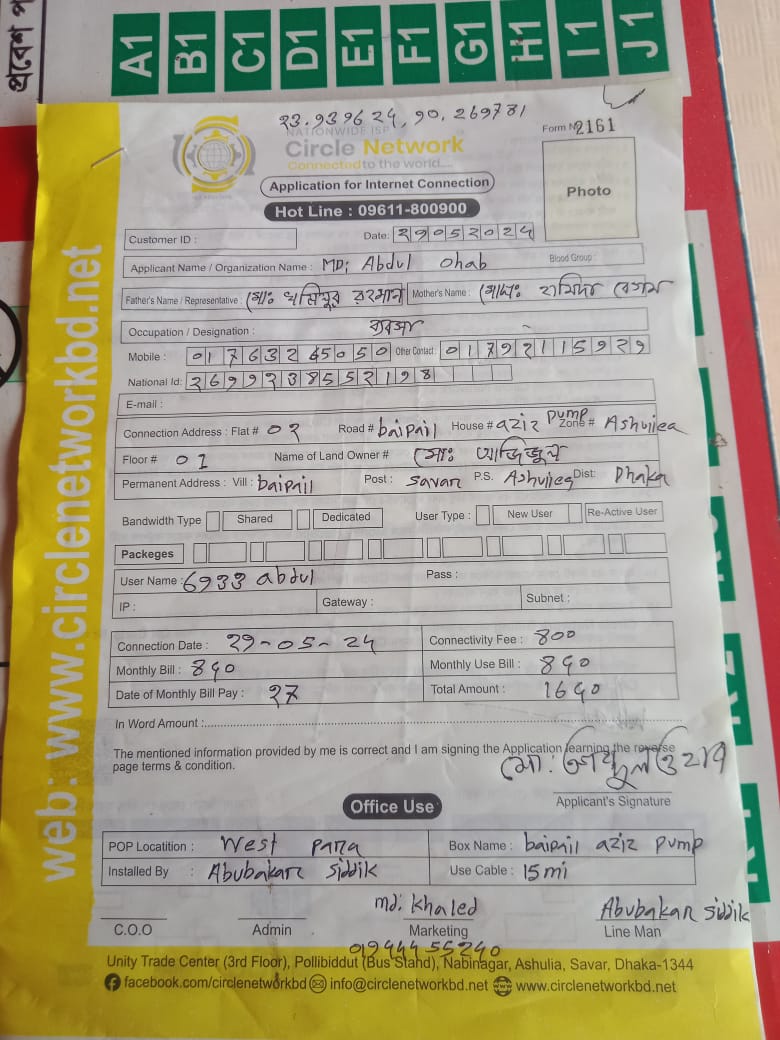 প্রবেশ প
A1 B1 C1 D1 E1 F1 G1 H1 I1 J1
23.939624, 90.269731
NATIONWIDE ISP
Form № 2161
Circle Network
Connected to the world....
Application for Internet Connection
Photo
Hot Line : 09611-800900
Customer ID :
Date: 29052024
Applicant Name / Organization Name : MD: Abdul Ohab Blood Group :
Father's Name / Representative : মোঃ রহমান Mother's Name : মোছাঃ হামিদা বেগম
Occupation / Designation : ব্যবসা
Mobile : 01763245050 Other Contact : 01792115929
National Id: 2699238552198
E-mail :
Connection Address : Flat # 02 Road # baipail House # aziz pump Zone # Ashuliea
Floor # 01 Name of Land Owner # মোঃ আজিজুল
Permanent Address : Vill : baipail Post : savar P.S. Ashuliea Dist: Dhaka
Bandwidth Type Shared Dedicated User Type : New User Re-Active User
Packeges
User Name : 6933 abdul Pass :
IP : Gateway : Subnet :
Connection Date : 29-05-24 Connectivity Fee : 800
Monthly Bill : 840 Monthly Use Bill : 840
Date of Monthly Bill Pay : 27 Total Amount : 1640
In Word Amount :
The mentioned information provided by me is correct and I am signing the Application learning the reverse
page terms & condition.
Applicant's Signature
Office Use
POP Locatition : West para Box Name : baipail aziz pump
Installed By : Abubakar Siddik Use Cable : 15mi
md: khaled Abubakar Siddik
C.O.O Admin Marketing Line Man
01944455240
Unity Trade Center (3rd Floor), Pollibiddut (Bus Stand), Nabinagar, Ashulia, Savar, Dhaka-1344
facebook.com/circlenetworkbd info@circlenetworkbd.net www.circlenetworkbd.net
web: www.circlenetworkbd.net